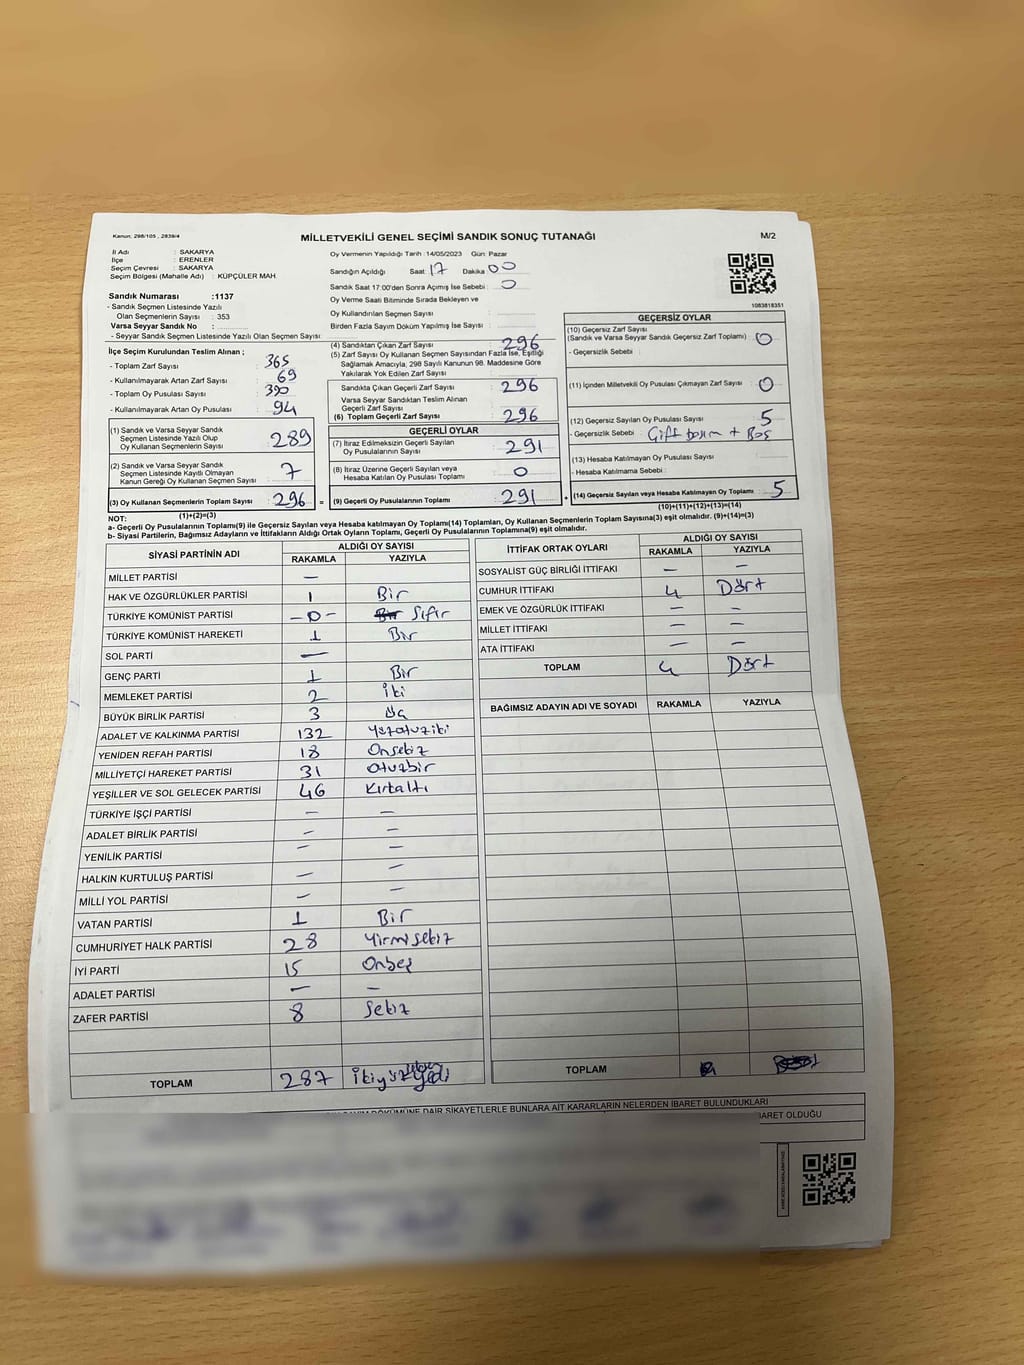 Kanun: 298/105 , 2839/4
MİLLETVEKİLİ GENEL SEÇİMİ SANDIK SONUÇ TUTANAĞI
M/2
İl Adı : SAKARYA
İlçe : ERENLER
Seçim Çevresi : SAKARYA
Seçim Bölgesi (Mahalle Adı) : KÜPÇÜLER MAH.
Sandık Numarası :1137
- Sandık Seçmen Listesinde Yazılı
Olan Seçmenlerin Sayısı : 353
Varsa Seyyar Sandık No :
- Seyyar Sandık Seçmen Listesinde Yazılı Olan Seçmen Sayısı :
Oy Vermenin Yapıldığı Tarih : 14/05/2023 Gün: Pazar
Sandığın Açıldığı Saat: 17 Dakika 00
Sandık Saat 17:00'den Sonra Açımış İse Sebebi : 0
Oy Verme Saati Bitiminde Sırada Bekleyen ve
Oy Kullandırılan Seçmen Sayısı :
Birden Fazla Sayım Döküm Yapılmış İse Sayısı :
1083818351
İlçe Seçim Kurulundan Teslim Alınan ;
- Toplam Zarf Sayısı : 365
- Kullanılmayarak Artan Zarf Sayısı : 69
- Toplam Oy Pusulası Sayısı : 390
- Kullanılmayarak Artan Oy Pusulası : 94
(1) Sandık ve Varsa Seyyar Sandık
Seçmen Listesinde Yazılı Olup
Oy Kullanan Seçmenlerin Sayısı : 289
(2) Sandık ve Varsa Seyyar Sandık
Seçmen Listesinde Kayıtlı Olmayan
Kanun Gereği Oy Kullanan Seçmen Sayısı : 7
(3) Oy Kullanan Seçmenlerin Toplam Sayısı : 296 =
(1)+(2)=(3)
(4) Sandıktan Çıkan Zarf Sayısı : 296
(5) Zarf Sayısı Oy Kullanan Seçmen Sayısından Fazla İse, Eşitliği
Sağlamak Amacıyla, 298 Sayılı Kanunun 98. Maddesine Göre
Yakılarak Yok Edilen Zarf Sayısı :
Sandıkta Çıkan Geçerli Zarf Sayısı : 296
Varsa Seyyar Sandıktan Teslim Alınan
Geçerli Zarf Sayısı :
(6) Toplam Geçerli Zarf Sayısı : 296
GEÇERLİ OYLAR
(7) İtiraz Edilmeksizin Geçerli Sayılan
Oy Pusulasının Sayısı : 291
(8) İtiraz Üzerine Geçerli Sayılan veya
Hesaba Katılan Oy Pusulası Toplamı : 0
(9) Geçerli Oy Pusulalarının Toplamı : 291 +
GEÇERSİZ OYLAR
(10) Geçersiz Zarf Sayısı
(Sandık ve Varsa Seyyar Sandık Geçersiz Zarf Toplamı) : 0
- Geçersizlik Sebebi :
(11) İçinden Milletvekili Oy Pusulası Çıkmayan Zarf Sayısı : 0
(12) Geçersiz Sayılan Oy Pusulası Sayısı : 5
- Geçersizlik Sebebi : Çift basım + Boş
(13) Hesaba Katılmayan Oy Pusulası Sayısı :
- Hesaba Katılmama Sebebi :
(14) Geçersiz Sayılan veya Hesaba Katılmayan Oy Toplamı : 5
(10)+(11)+(12)+(13)=(14)
NOT:
a- Geçerli Oy Pusulalarının Toplamı(9) ile Geçersiz Sayılan veya Hesaba katılmayan Oy Toplamı(14) Toplamları, Oy Kullanan Seçmenlerin Toplam Sayısına(3) eşit olmalıdır. (9)+(14)=(3)
b- Siyasi Partilerin, Bağımsız Adayların ve İttifakların Aldığı Ortak Oyların Toplamı, Geçerli Oy Pusulalarının Toplamına(9) eşit olmalıdır.
SİYASİ PARTİNİN ADI ALDIĞI OY SAYISI
RAKAMLA YAZIYLA
MİLLET PARTİSİ —
HAK VE ÖZGÜRLÜKLER PARTİSİ 1 Bir
TÜRKİYE KOMÜNİST PARTİSİ -0- Sıfır
TÜRKİYE KOMÜNİST HAREKETİ 1 Bir
SOL PARTİ —
GENÇ PARTİ 1 Bir
MEMLEKET PARTİSİ 2 İki
BÜYÜK BİRLİK PARTİSİ 3 Üç
ADALET VE KALKINMA PARTİSİ 132 Yüzotuziki
YENİDEN REFAH PARTİSİ 18 Onsekiz
MİLLİYETÇİ HAREKET PARTİSİ 31 Otuzbir
YEŞİLLER VE SOL GELECEK PARTİSİ 46 Kırkaltı
TÜRKİYE İŞÇİ PARTİSİ — —
ADALET BİRLİK PARTİSİ — —
YENİLİK PARTİSİ — —
HALKIN KURTULUŞ PARTİSİ — —
MİLLİ YOL PARTİSİ — —
VATAN PARTİSİ 1 Bir
CUMHURİYET HALK PARTİSİ 28 Yirmisekiz
İYİ PARTİ 15 Onbeş
ADALET PARTİSİ — —
ZAFER PARTİSİ 8 Sekiz
TOPLAM 287 İkiyüz Yedi
İTTİFAK ORTAK OYLARI ALDIĞI OY SAYISI
RAKAMLA YAZIYLA
SOSYALİST GÜÇ BİRLİĞİ İTTİFAKI — —
CUMHUR İTTİFAKI 4 Dört
EMEK VE ÖZGÜRLÜK İTTİFAKI — —
MİLLET İTTİFAKI — —
ATA İTTİFAKI — —
TOPLAM 4 Dört
BAĞIMSIZ ADAYIN ADI VE SOYADI RAKAMLA YAZIYLA
TOPLAM
DÖKÜMÜNE DAİR ŞİKAYETLERLE BUNLARA AİT KARARLARIN NELERDEN İBARET BULUNDUKLARI
İBARET OLDUĞU